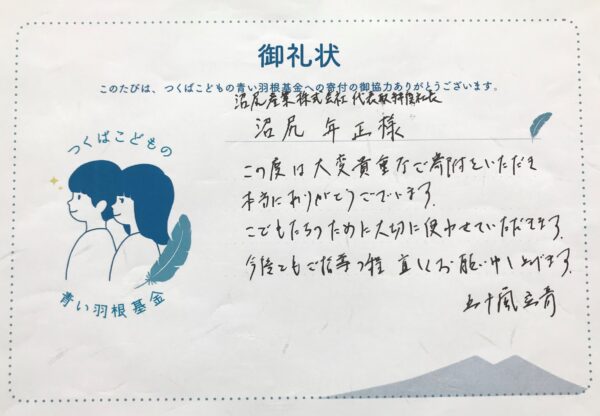 御礼状
このたびは、つくばこどもの青い羽根基金への寄付の御協力ありがとうございます。
沼尻産業株式会社 代表取締役社長
沼尻 年正様
この度は大変貴重なご寄附をいただき
本当にありがとうございます。
こどもたちのために大切に使わせていただきます。
今後ともご指導の程 宜しくお願い申し上げます。
五十嵐立青
つくばこどもの
青い羽根基金